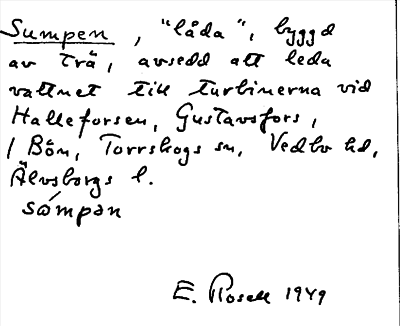 Sumpen, "låda", byggd
av trä, avsedd att leda
vattnet till turbinerna vid
Halleforsen, Gustavsfors,
i Bön, Torrskogs sn, Vedbo hd,
Älvsborgs l.
sámpən
E. Rosell 1949